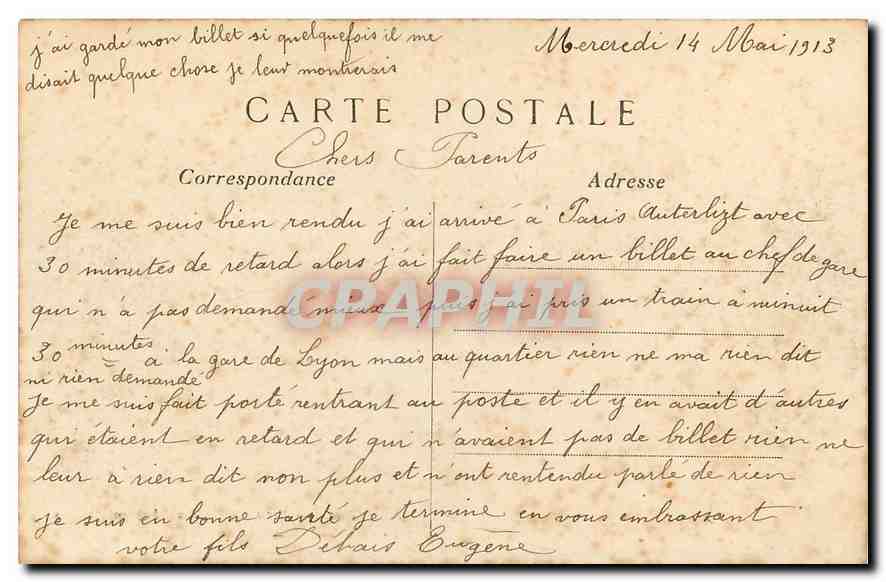 j'ai gardé mon billet si quelquefois il me
disait quelque chose je leur montrerais
Mercredi 14 Mai 1913
CARTE POSTALE
Chers Parents
Correspondance
Adresse
Je me suis bien rendu j'ai arrivé à Paris Auterlizt avec
30 minutes de retard alors j'ai fait faire un billet au chef de gare
qui n'à pas demandé mieux puis j'ai pris un train à minuit
30 minutes à la gare de Lyon mais au quartier rien ne ma rien dit
ni rien demandé
Je me suis fait porté rentrant au poste et il y en avait d'autres
qui étaient en retard et qui n'avaient pas de billet rien ne
leur à rien dit non plus et n'ont rentendu parlé de rien
je suis en bonne santé je termine en vous embrassant
votre fils Débais Eugène
CPAPHIL